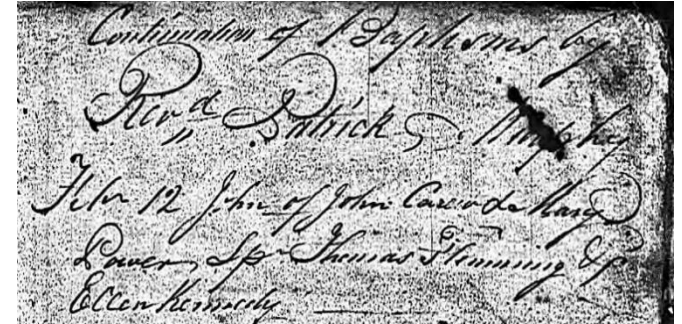 Continuation of Baptisms by
Revd Patrick Murphy
Febr 12 John of John & Mary
Power Sp Thomas Flemming &
Ellen Kennedy